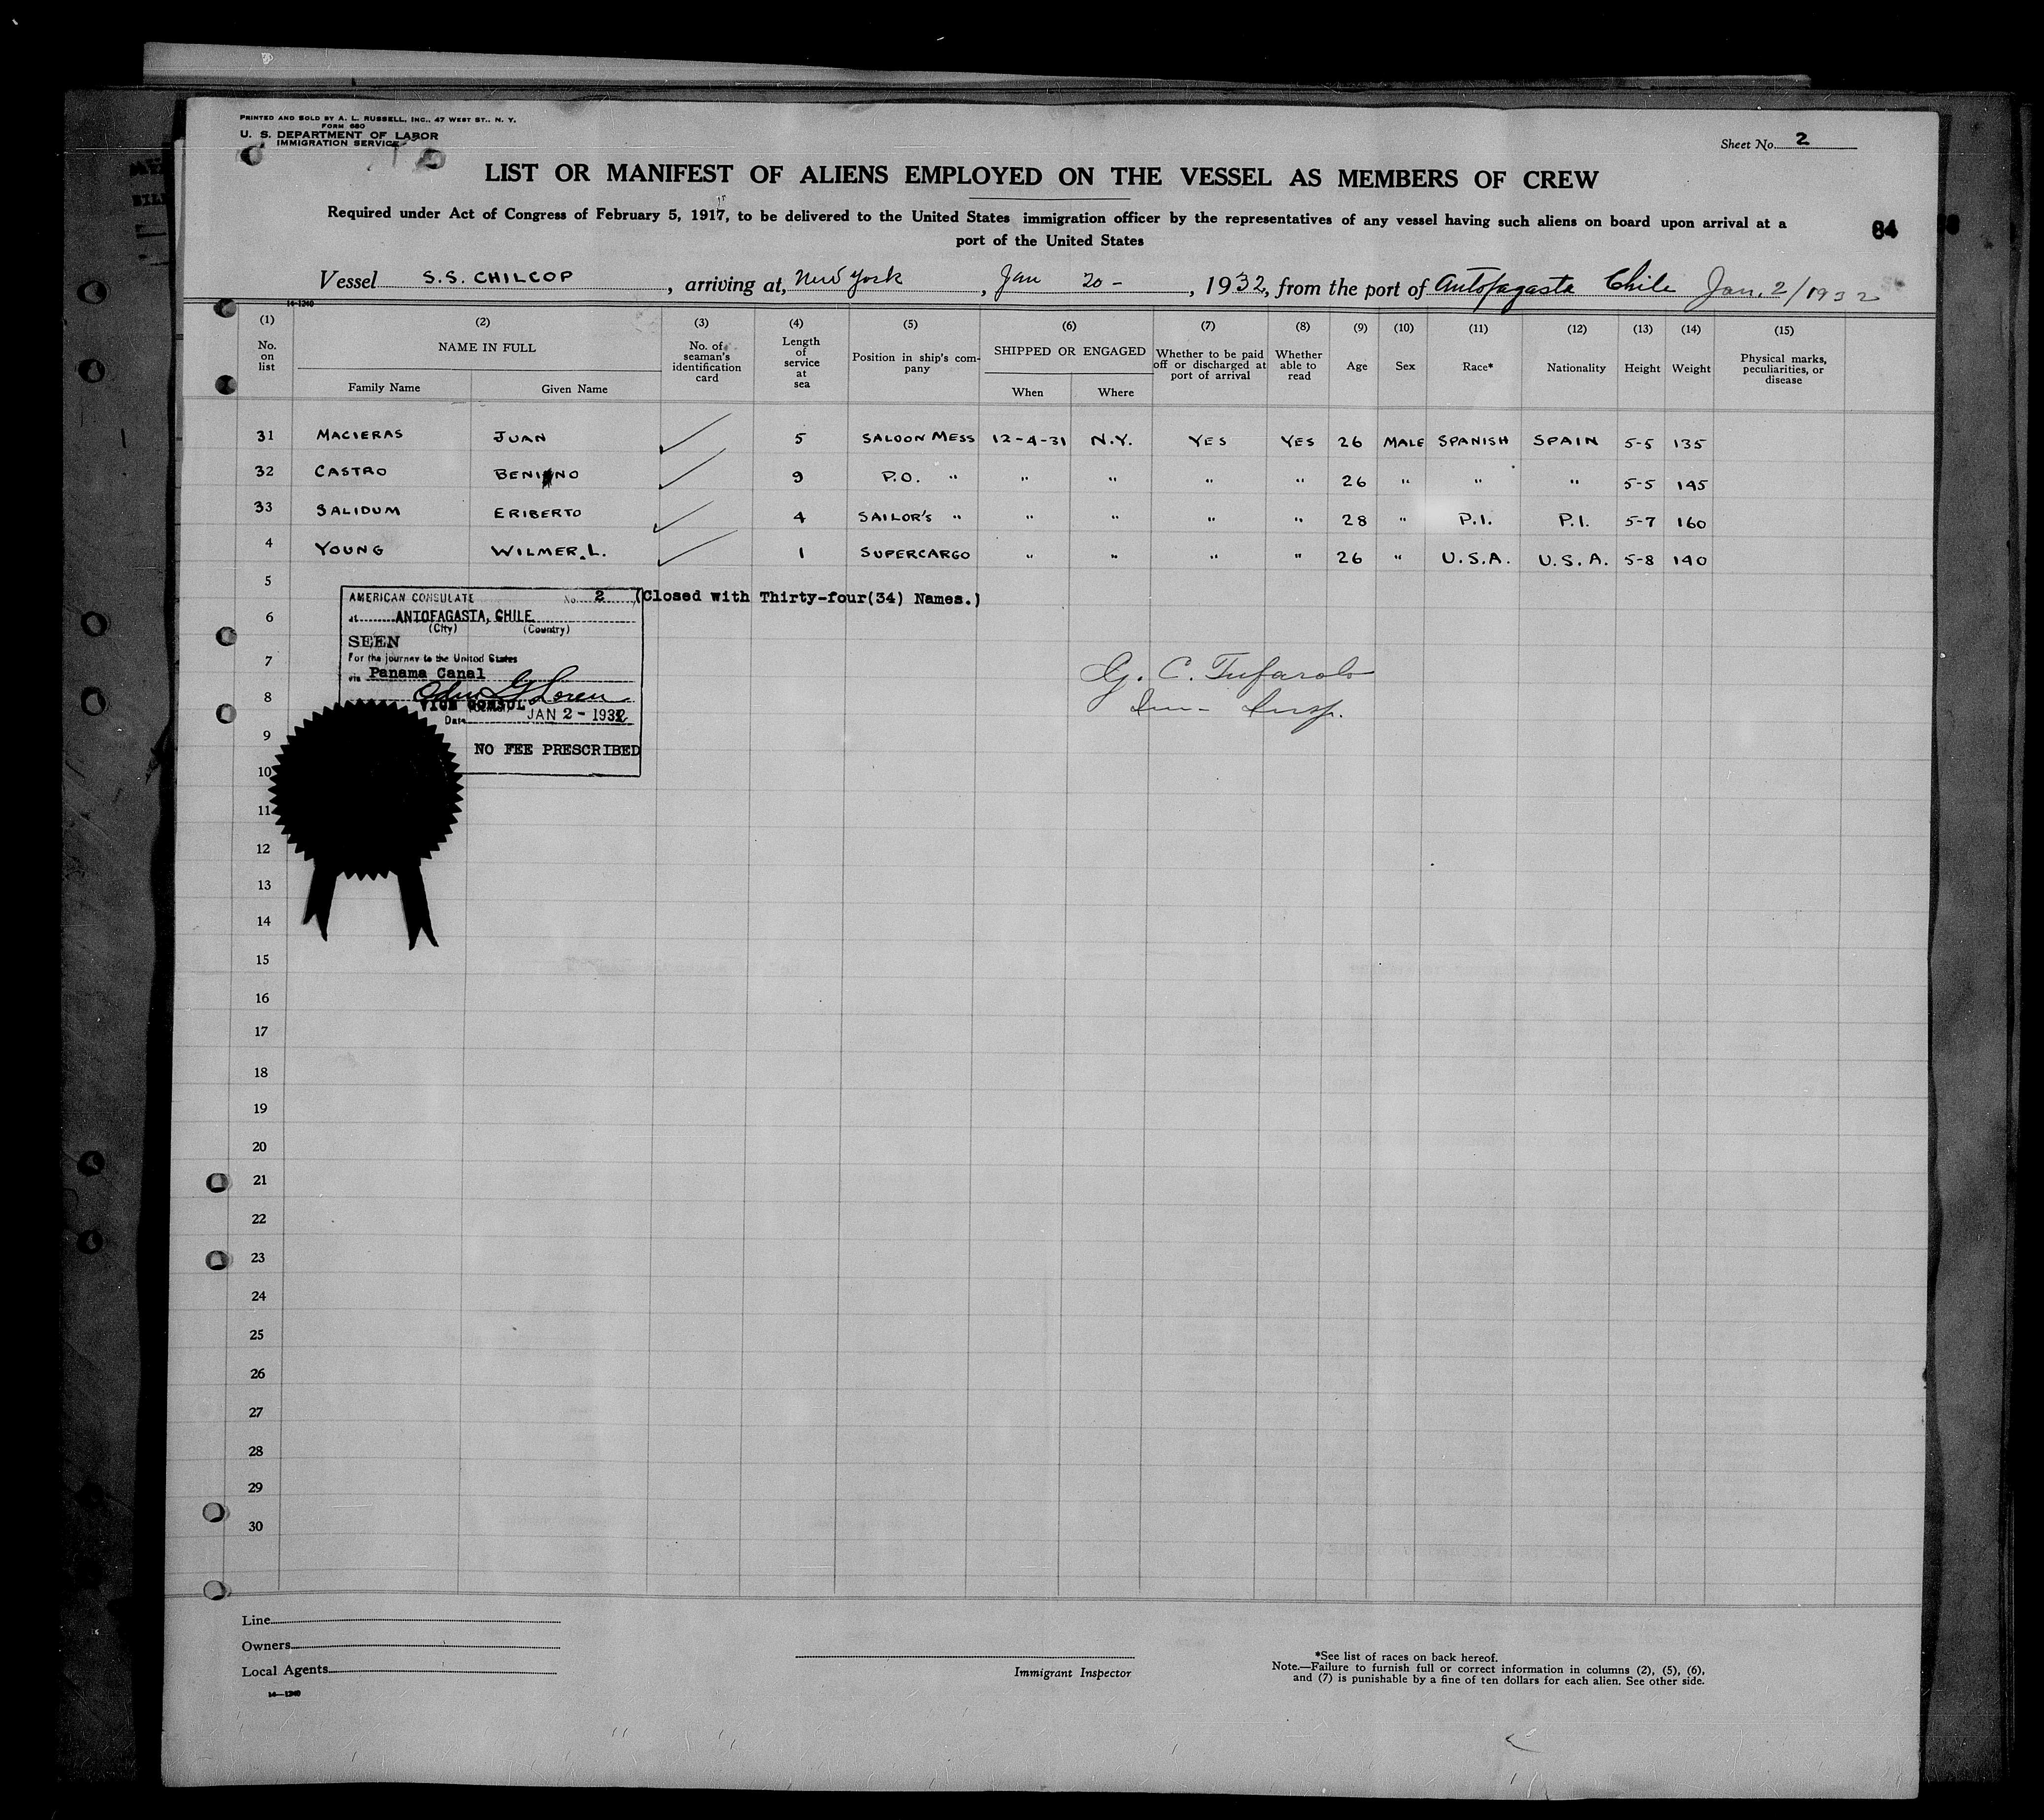 PRINTED AND SOLD BY A. L. RUSSELL, INC., 47 WEST ST., N. Y.
FORM 680
U. S. DEPARTMENT OF LABOR
IMMIGRATION SERVICE
Sheet No. 2
LIST OR MANIFEST OF ALIENS EMPLOYED ON THE VESSEL AS MEMBERS OF CREW
Required under Act of Congress of February 5, 1917, to be delivered to the United States immigration officer by the representatives of any vessel having such aliens on board upon arrival at a
port of the United States
84
Vessel S.S. CHILCOP, arriving at, New York, Jan 20 -, 1932, from the port of Antofagasta Chile Jan. 2/1932
14-1240
(1) (2) (3) (4) (5) (6) (7) (8) (9) (10) (11) (12) (13) (14) (15)
No. on list NAME IN FULL No. of seaman's identification card Length of service at sea Position in ship's company SHIPPED OR ENGAGED Whether to be paid off or discharged at port of arrival Whether able to read Age Sex Race* Nationality Height Weight Physical marks, peculiarities, or disease
Family Name Given Name When Where
31 MACIERAS JUAN 5 SALOON MESS 12-4-31 N.Y. YES YES 26 MALE SPANISH SPAIN 5-5 135
32 CASTRO BENI NO 9 P.O. " " " " " 26 " " " 5-5 145
33 SALIDUM ERIBERTO 4 SAILOR'S " " " " " 28 " P.I. P.I. 5-7 160
4 YOUNG WILMER.L. 1 SUPERCARGO " " " " 26 " U.S.A. U.S.A. 5-8 140
5
AMERICAN CONSULATE No. 2 (Closed with Thirty-four(34) Names.)
6
at ANTOFAGASTA, CHILE
(City) (Country)
SEEN
For the journey to the United States
7
via Panama Canal
G. C. Tufarolo
8
VICE CONSUL
Imm- Insp.
Date JAN 2 - 1932
9
NO FEE PRESCRIBED
10
11
12
13
14
15
16
17
18
19
20
21
22
23
24
25
26
27
28
29
30
Line
Owners
Local Agents
14-1240
Immigrant Inspector
*See list of races on back hereof.
Note.—Failure to furnish full or correct information in columns (2), (5), (6),
and (7) is punishable by a fine of ten dollars for each alien. See other side.